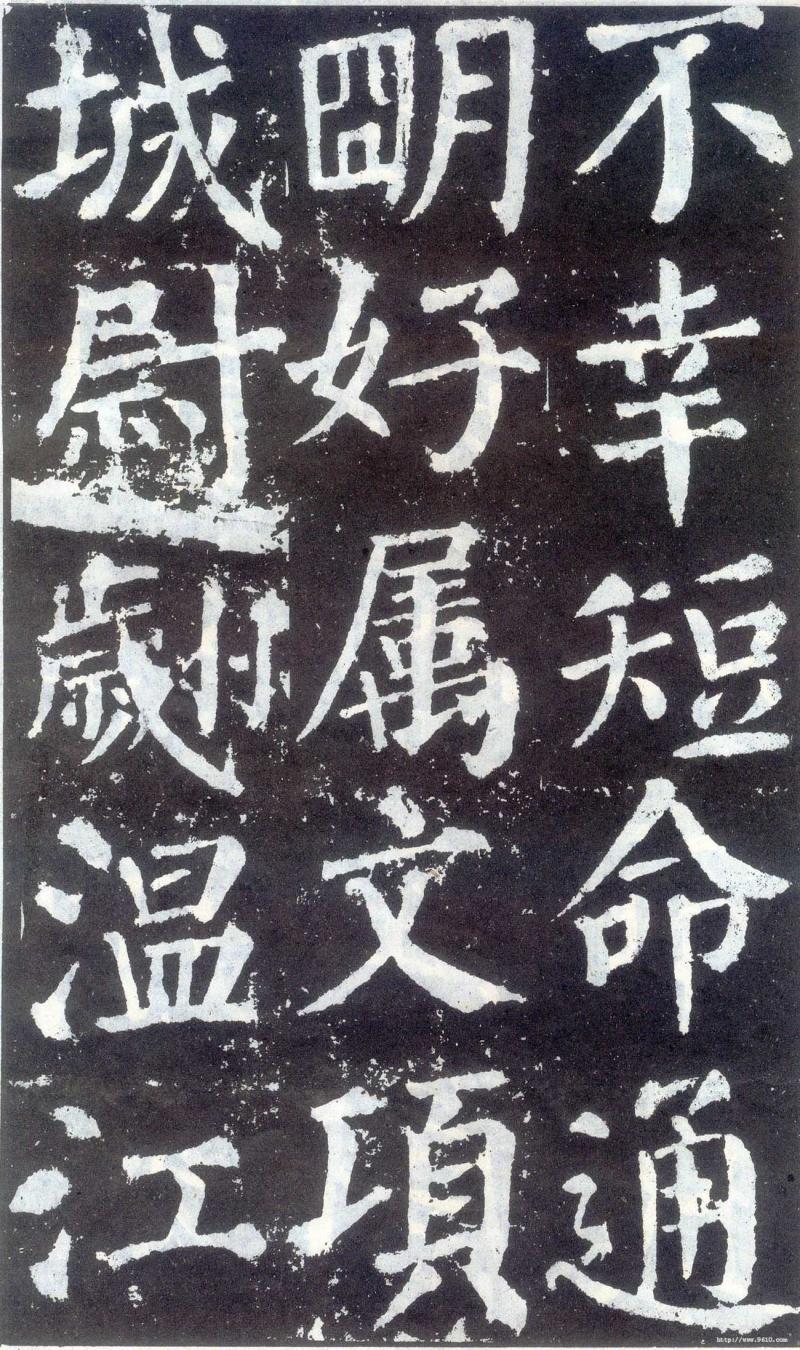 不幸短命通
朙好属文項
城尉翽温江
http://www.9610.com